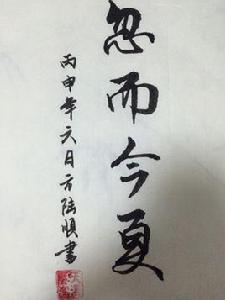 忽而今夏
丙申年六月方陆顺書